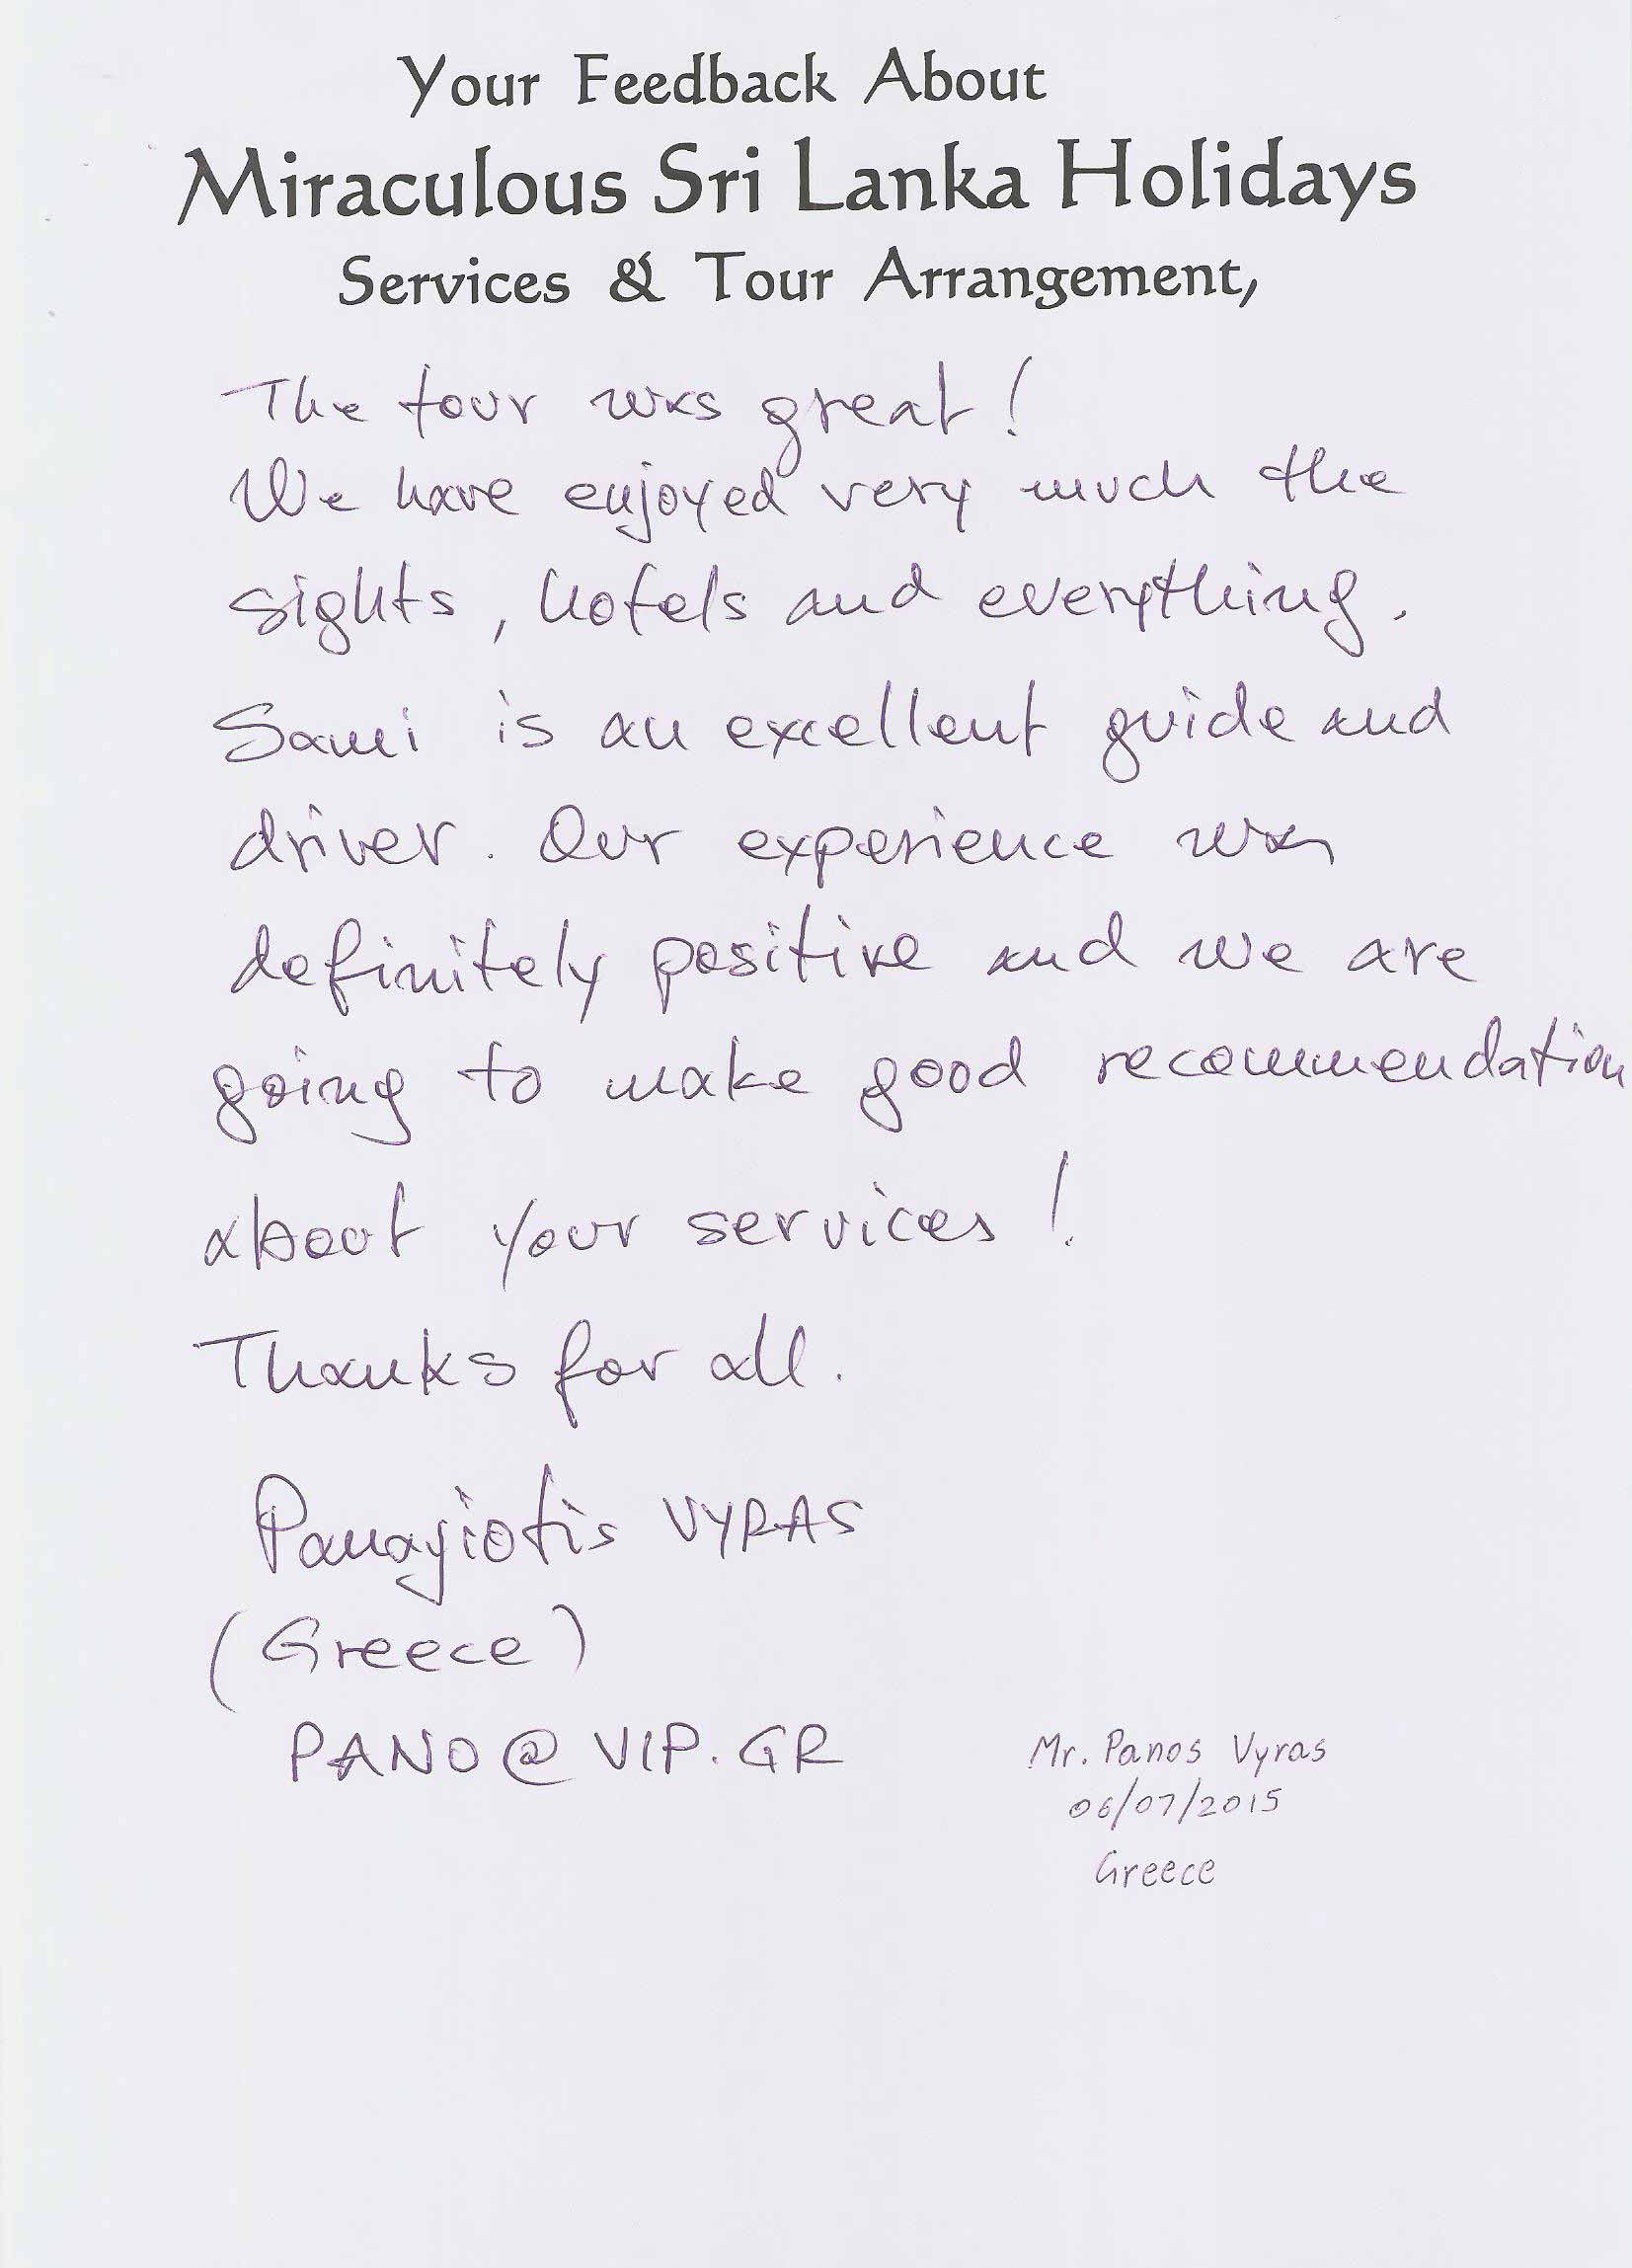 Your Feedback About
Miraculous Sri Lanka Holidays
Services & Tour Arrangement,
The tour was great!
We have enjoyed very much the
sights, hotels and everything.
Sami is an excellent guide and
driver. Our experience was
definitely positive and we are
going to make good recommendation
about your services!
Thanks for all.
Panagiotis VYRAS
(Greece)
PANO@VIP.GR
Mr. Panos Vyras
06/07/2015
Greece